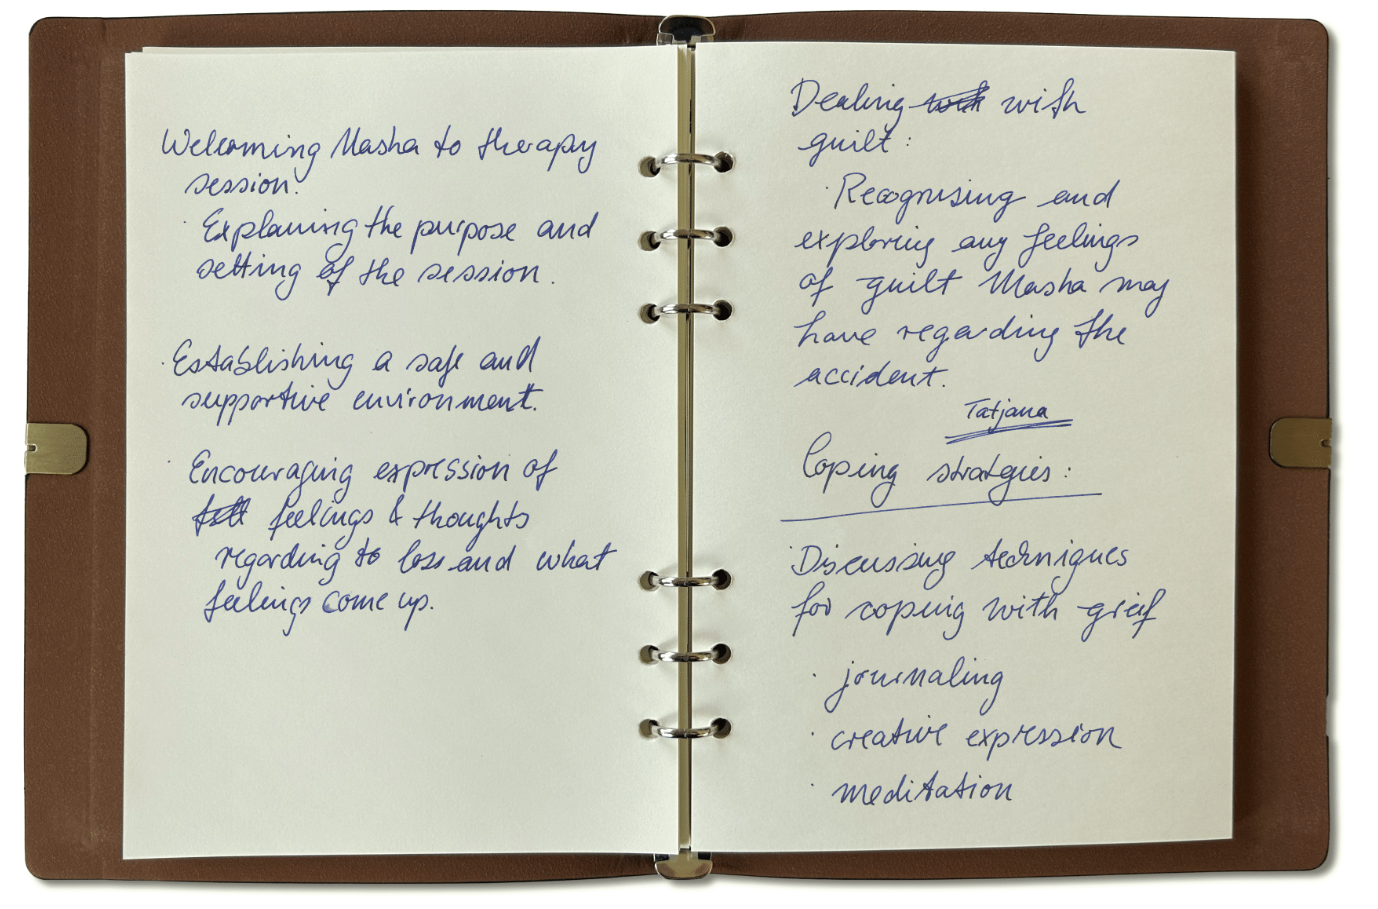 Welcoming Masha to therapy
session.
· Explaining the purpose and
setting of the session.
· Establishing a safe and
supportive environment.
· Encouraging expression of
feelings & thoughts
regarding to loss and what
feelings come up.
Dealing with
guilt:
· Recognising and
exploring any feelings
of guilt Masha may
have regarding the
accident.
Tatjana
Coping strategies:
· Discussing techniques
for coping with grief
· journaling
· creative expression
· meditation